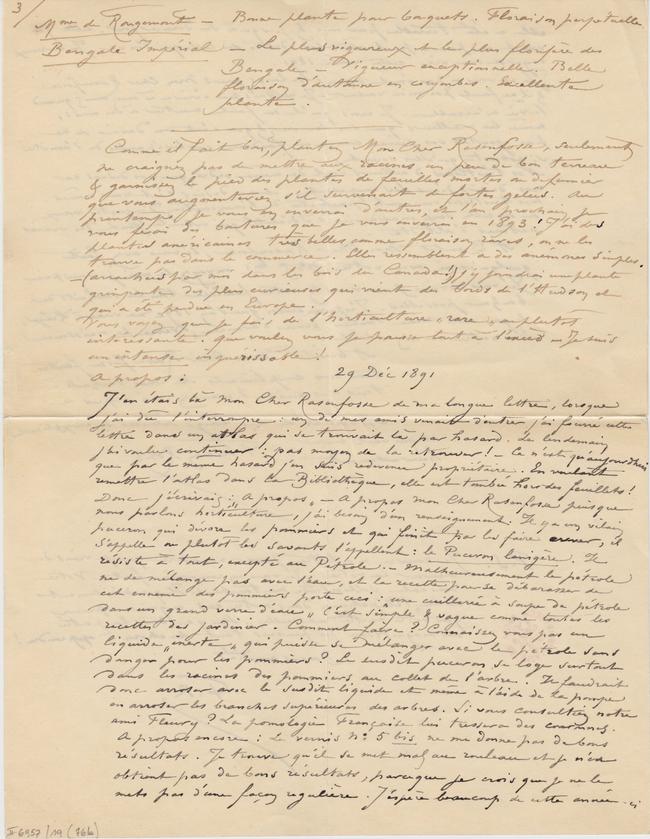 3/
Mme de Rougemont — Bonne plante pour baquets. Floraison perpétuelle
Bengale Impérial — Le plus vigoureux et le plus florifère des
Bengale — Vigueur exceptionnelle. Belle
floraison d'automne en corymbes. Excellente
plante.
Comme il fait bon, plantez Mon Cher Rasenfosse, seulement
ne craignez pas de mettre aux racines un peu de bon terreau
& garnissez le pied des plantes de feuilles mortes ou de fumier
que vous augmenteriez s'il survenait de fortes gelées. Au
printemps je vous en enverrai d'autres, et l'an prochain je
vous ferai des boutures que je vous enverrai en 1893! J'ai des
plantes américaines très belles comme floraison, rares, on ne les
trouve pas dans le commerce. Elles ressemblent à des anemones simples.
— (arrachées par moi dans les bois du Canada!) j'y joindrai une plante
grimpante des plus curieuses qui vient des bords de l'Hudson et
qui a été perdue en Europe.
Vous voyez que je fais de l'horticulture "rare", ou plutot
interessante. Que voulez vous je pousse tout à l'excès — Je suis
un intense inguérissable!
A propos: 29 Déc 1891
J'en étais là mon Cher Rasenfosse de ma longue lettre, lorsque
j'ai dû l'interrompre: un de mes amis venait d'entrer j'ai fourré cette
lettre dans un atlas qui se trouvait là par hasard. Le lendemain
j'ai voulu continuer: pas moyen de la retrouver! — Ce n'est qu'aujourd'hui
que par le même hasard j'en suis redevenu propriétaire. En voulant
remettre l'atlas dans la Bibliothèque, elle est tombée hors des feuillets!
Donc j'écrivais: A propos, — A propos mon Cher Rasenfosse puisque
nous parlons horticulture, j'ai besoin d'un renseignement: Il y a un vilain
puceron qui dévore les pommiers et qui finit par les faire crever, il
s'appelle ou plutot les savants l'appellent: le Puceron lanigère. Il
résiste à tout, excepté au Pétrole. — Malheureusement le pétrole
ne se mélange pas avec l'eau, et la recette pour se débarasser de
cet ennemi des pommiers porte ceci: une cuillerée à soupe de pétrole
dans un grand verre d'eau" C'est simple & vague comme toutes les
recettes des jardinier. Comment faire? Connaissez vous pas un
liquide "inerte" qui puisse se mélanger avec le pétrole sans
danger pour les pommiers? Le susdit puceron se loge surtout
dans les racines des pommiers au collet de l'arbre. Il faudrait
donc arroser avec le susdit liquide et même à l'aide de la pompe
en arroser les branches supérieures des arbres. Si vous consultiez notre
ami Fleury? La pomologie Française lui tressera des couronnes.
A propos encore: Le vernis No 5 bis ne me donne pas de bons
résultats. Je trouve qu'il se met mal au rouleau et je n'en
obtient pas de bons résultats, parceque je crois que je ne le
mets pas d'une façon régulière. J'espère beaucoup de cette année-ci
II 6957/19 (76b)